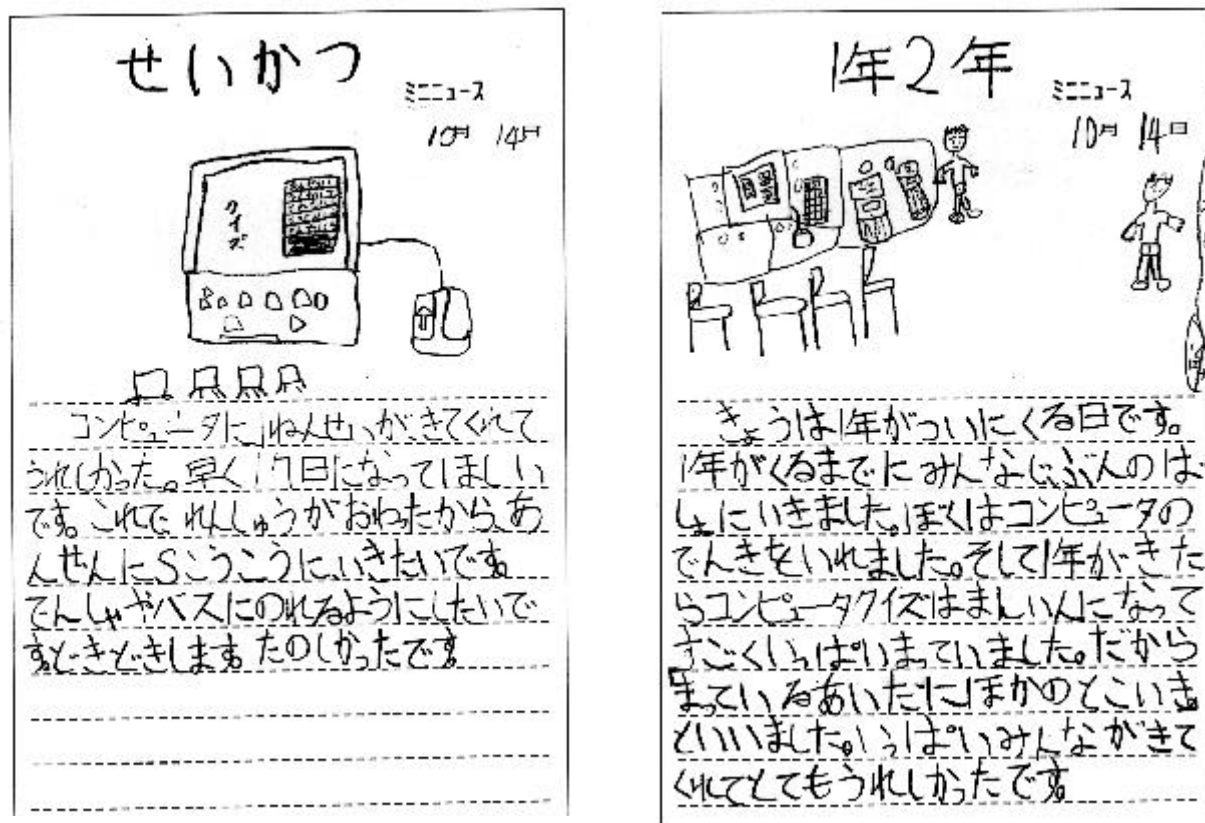 せいかつ
ミニニュース
10月 14日
クイズ
コンピュータに1ねんせいがきてくれて
うれしかった。早く17日になってほしい
です。これでれんしゅうがおわったから、あ
んぜんにSこうこうにいきたいです。
でんしゃやバスにのれるようにしたいで
す。どきどきします。たのしかったです。
1年2年
ミニニュース
10月 14日
きょうは1年がついにくる日です。
1年がくるまでにみんなじぶんのば
しょにいきました。ぼくはコンピュータの
でんきをいれました。そして1年がきた
らコンピュータクイズはまんいんになって
すごくいっぱいまっていました。だから
「まっているあいだにほかのとこいき。
といいました。いっぱいみんながきて
くれてとてもうれしかったです。